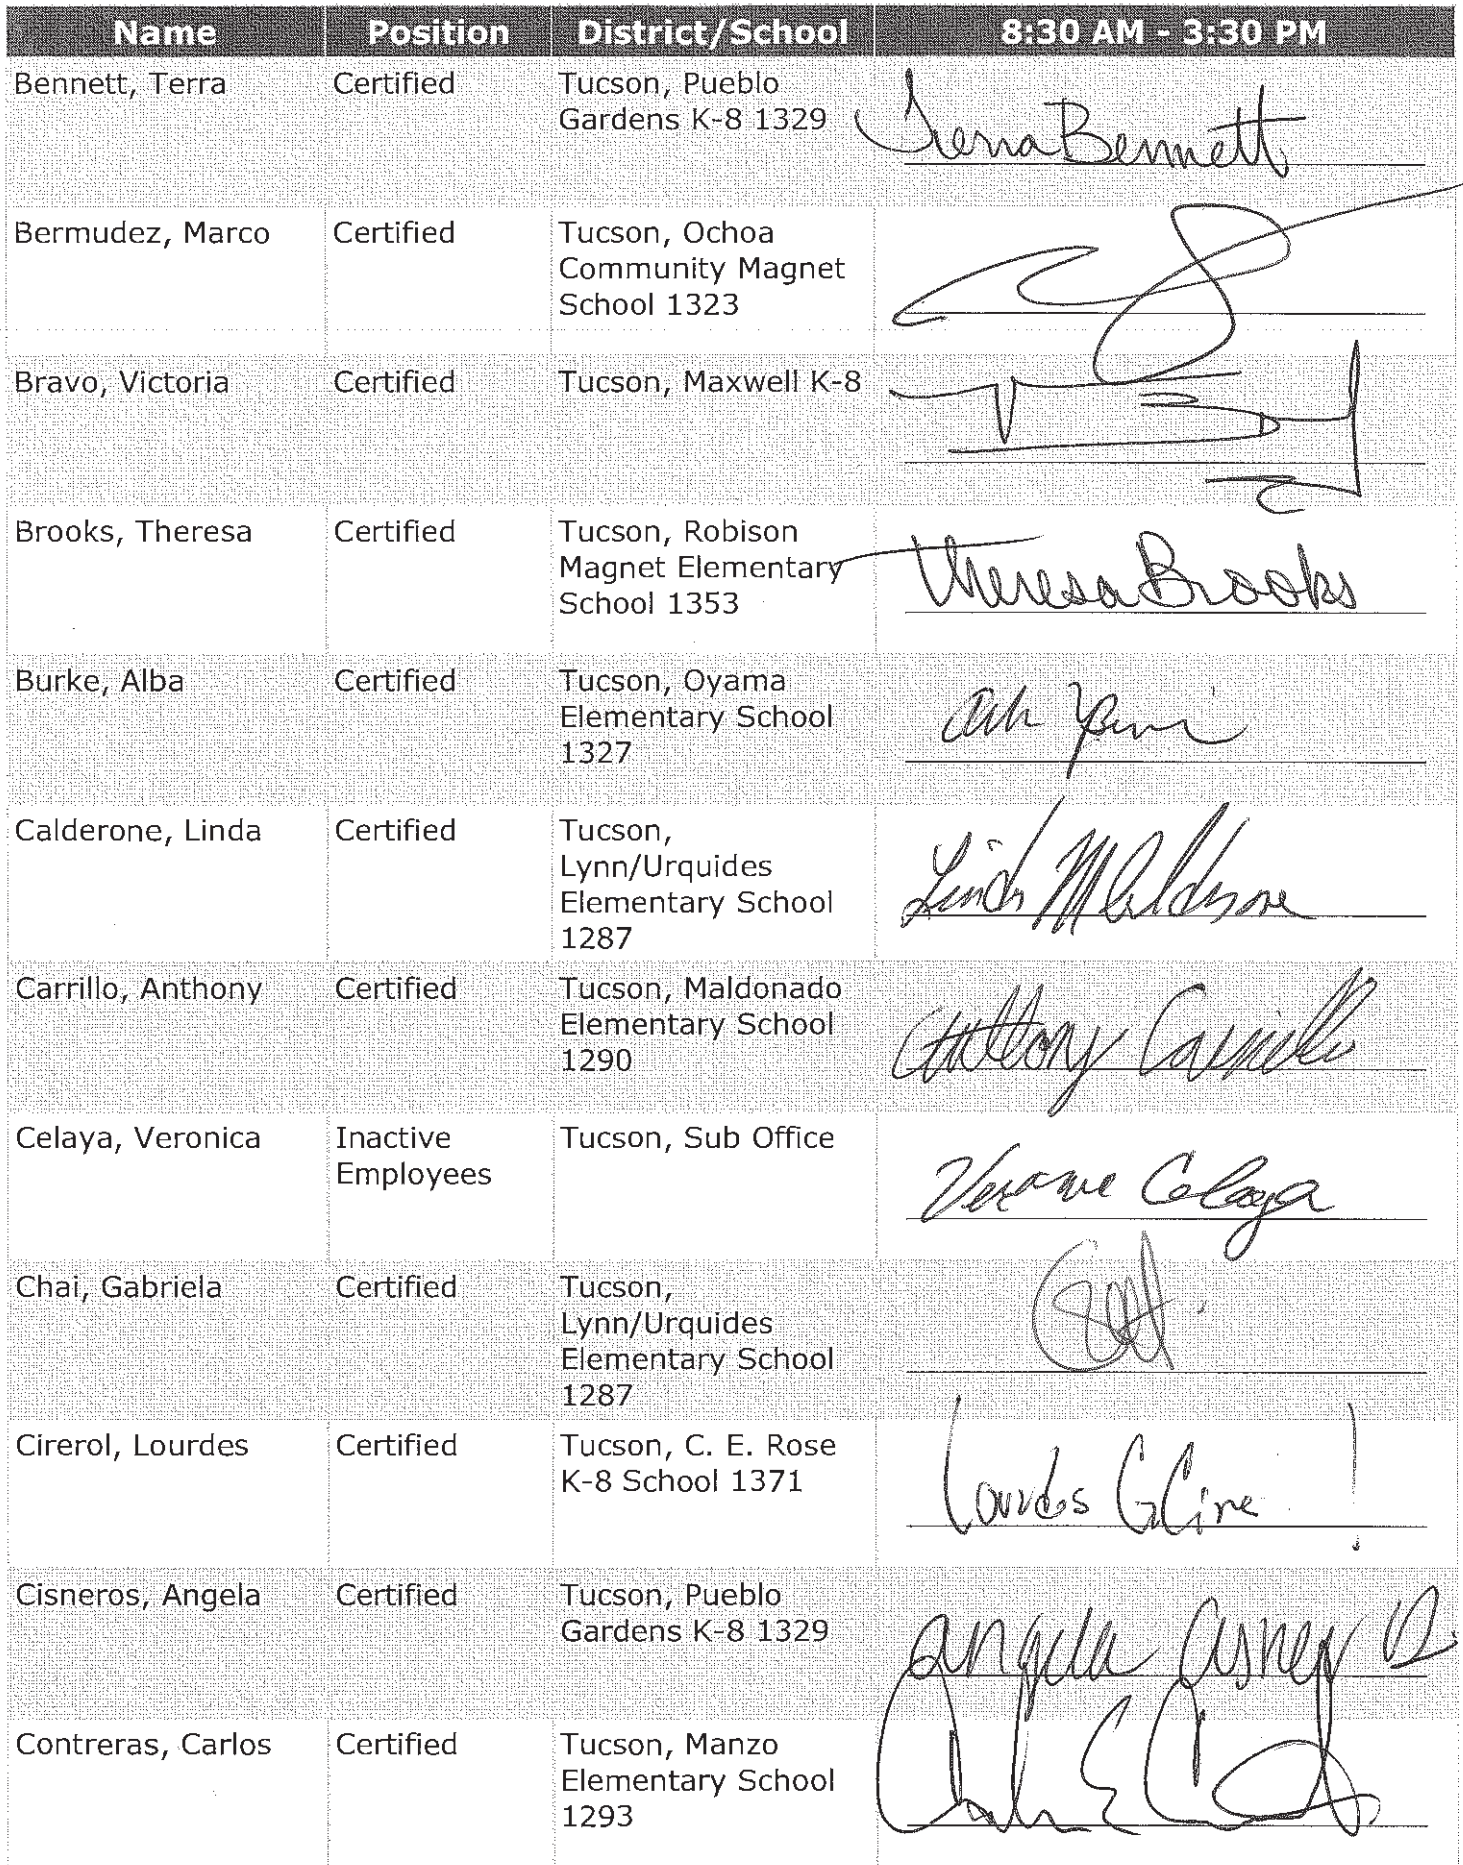 Name Position District/School 8:30 AM - 3:30 PM
Bennett, Terra Certified Tucson, Pueblo
Gardens K-8 1329 Terra Bennett
Bermudez, Marco Certified Tucson, Ochoa
Community Magnet
School 1323
Bravo, Victoria Certified Tucson, Maxwell K-8
Brooks, Theresa Certified Tucson, Robison
Magnet Elementary Theresa Brooks
School 1353
Burke, Alba Certified Tucson, Oyama
Elementary School
1327
Calderone, Linda Certified Tucson,
Lynn/Urquides
Elementary School Linda M Calderone
1287
Carrillo, Anthony Certified Tucson, Maldonado
Elementary School Anthony Carrillo
1290
Celaya, Veronica Inactive Tucson, Sub Office
Employees Celaya
Chai, Gabriela Certified Tucson,
Lynn/Urquides
Elementary School
1287
Cirerol, Lourdes Certified Tucson, C. E. Rose
K-8 School 1371 Lourdes
Cisneros, Angela Certified Tucson, Pueblo
Gardens K-8 1329 Angela
Contreras, Carlos Certified Tucson, Manzo
Elementary School
1293